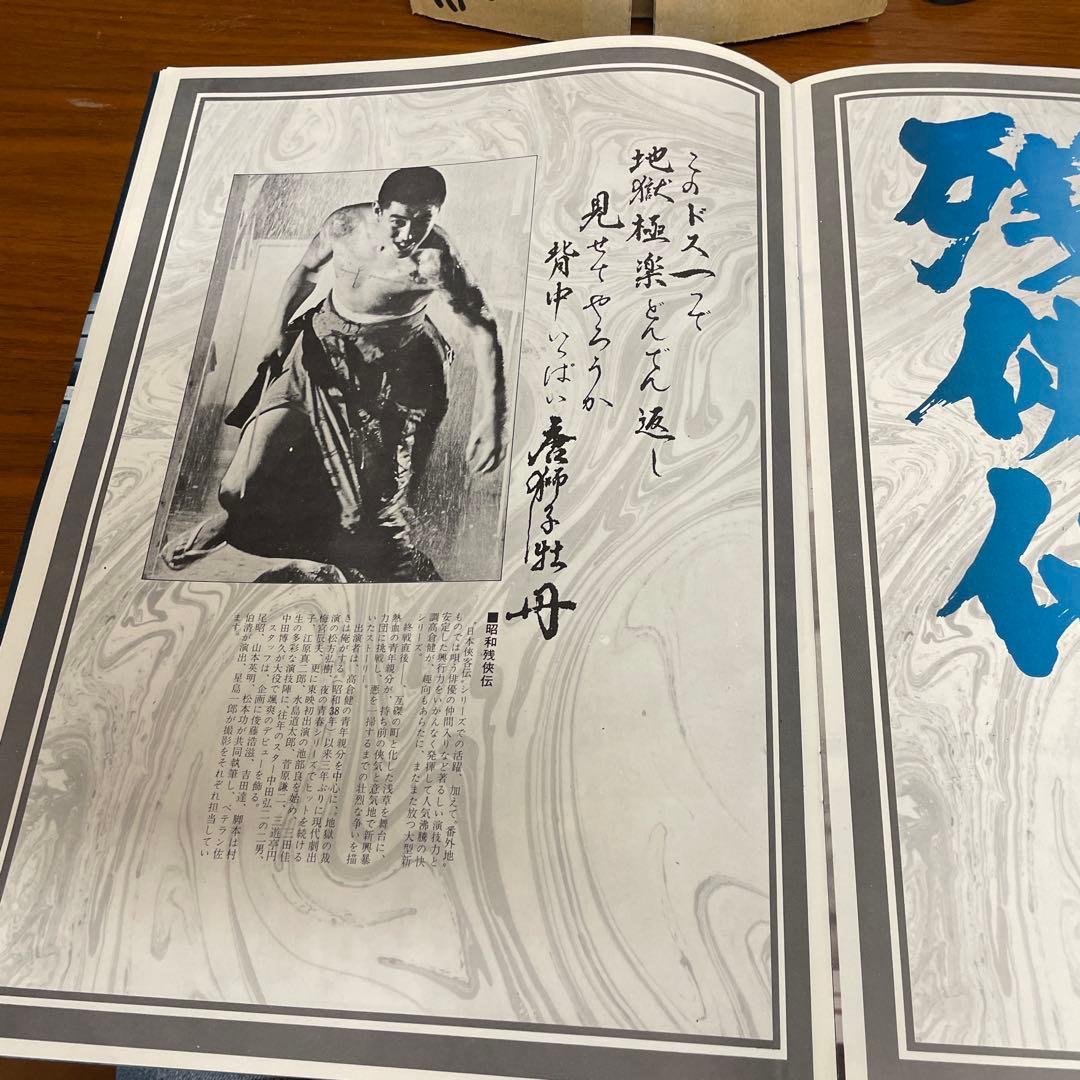 このドス一つで
地獄極楽どんでん返し
見せてやろうか
背中いっぱい
唐獅子牡丹
■昭和残侠伝
“日本侠客伝”シリーズでの活躍、加えて“番外地”
ものでは唄う俳優の仲間入りなど著るしい演技力と
安定した興行力をいかんなく発揮して人気沸騰の快
調高倉健が、趣向もあらたに、またまた放つ大型新
シリーズ。
終戦直後——、瓦礫の町と化した浅草を舞台に、
熱血の青年親分が、持ち前の侠気と意気地で新興暴
力団に挑戦し、悪を一掃するまでの壮烈な争いを描
いたストーリー。
出演者は、高倉健の青年親分を中心に、“地獄の裁
きは俺がする”（昭和38年）以来三年ぶりに現代劇出
演の松方弘樹、“夜の青春シリーズ”でヒットを続ける
梅宮辰夫、更に東映初出演の池部良を始め、三田佳
子、江原真二郎、水島道太郎、菅原謙二、三遊亭円
生の多彩な演技陣に、往年のスター中田弘二の二男、
中田博久が大役で颯爽のデビューを飾る。
スタッフは、企画に俊藤浩滋、吉田達、脚本は村
尾昭、山本英明、松本功が共同執筆し、ベテラン佐
伯清が演出、星島一郎が撮影をそれぞれ担当してい
ます。
残侠伝